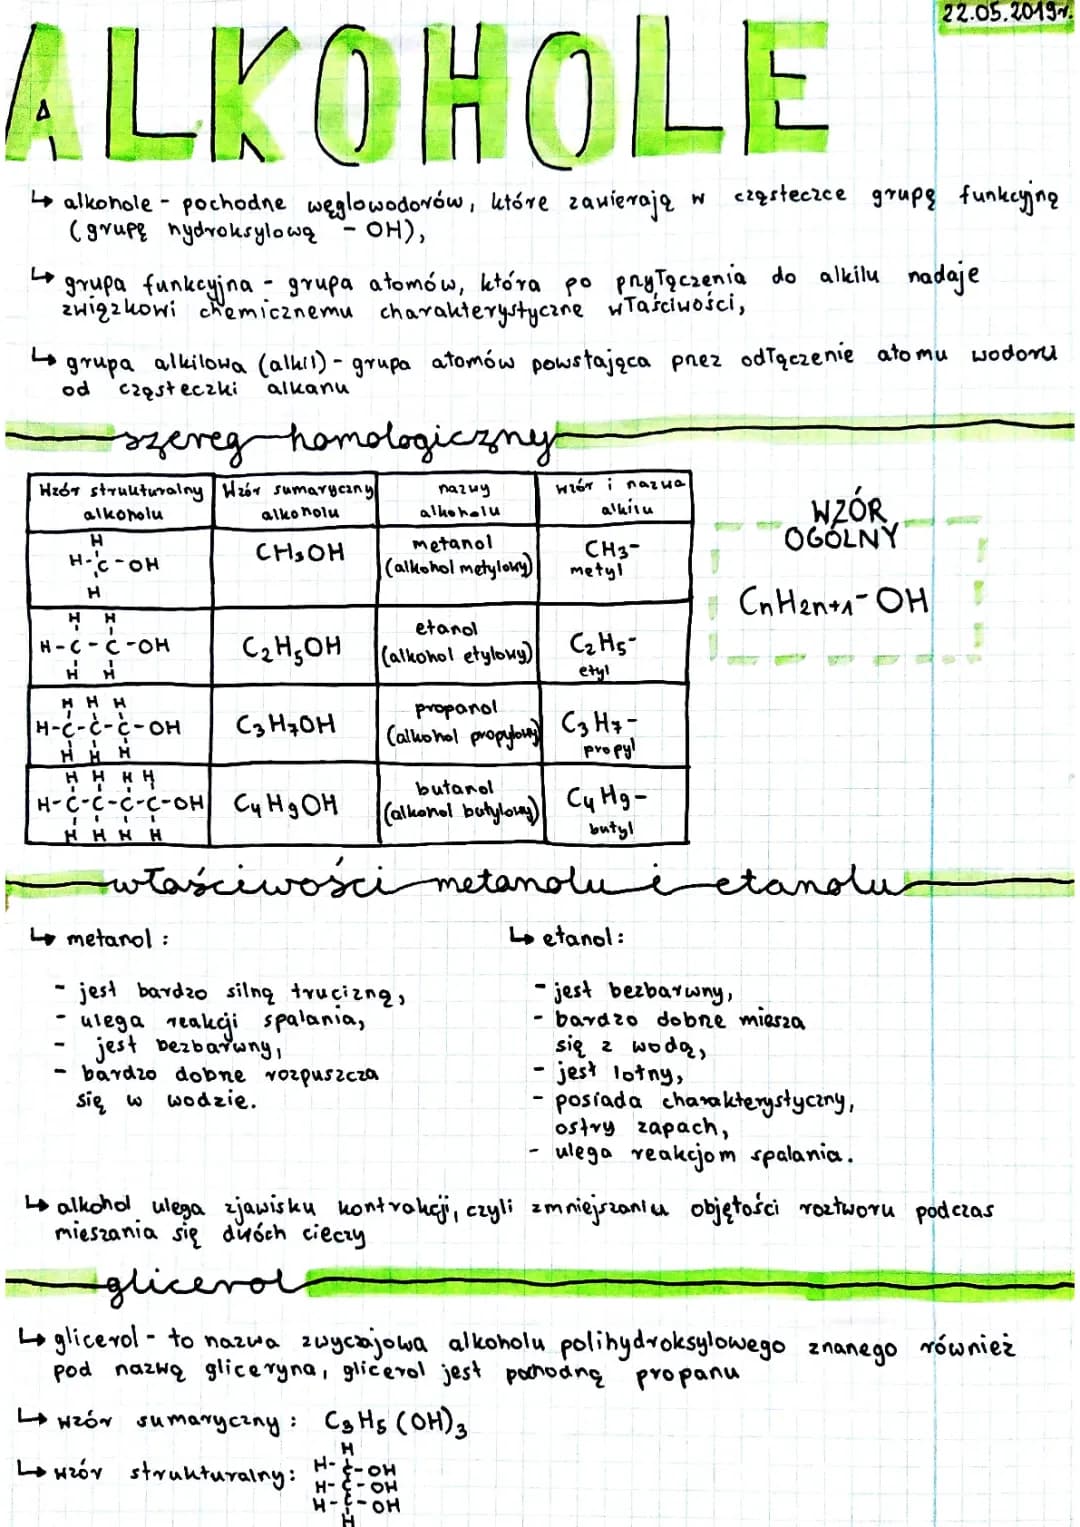 22.05.2019r.
ALKOHOLE
↳ alkohole - pochodne węglowodorów, które zawierają w cząsteczce grupę funkcyjną
(grupę hydroksylową - OH),
↳ grupa funkcyjna - grupa atomów, która po przyłączenia do alkilu nadaje
związkowi chemicznemu charakterystyczne właściwości,
↳ grupa alkilowa (alkil) - grupa atomów powstająca przez odłączenie atomu wodoru
od cząsteczki alkanu
szereg homologiczny
Wzór strukturalny alkoholu | Wzór sumaryczny alkoholu | nazwy alkoholu | wzór i nazwa alkilu
H
H-C-OH
H
CH3OH
metanol
(alkohol metylowy)
CH3-
metyl
H H
H-C-C-OH
H H
C2H5OH
etanol
(alkohol etylowy)
C2H5-
etyl
H H H
H-C-C-C-OH
H H H
C3H7OH
propanol
(alkohol propylowy)
C3H7-
propyl
H H H H
H-C-C-C-C-OH
H H H H
C4H9OH
butanol
(alkohol butylowy)
C4H9-
butyl
WZÓR
OGÓLNY
CnH2n+1-OH
właściwości metanolu i etanolu
↳ metanol:
- jest bardzo silną trucizną,
- ulega reakcji spalania,
- jest bezbarwny,
- bardzo dobrze rozpuszcza
się w wodzie.
↳ etanol:
- jest bezbarwny,
- bardzo dobrze miesza
się z wodą,
- jest lotny,
- posiada charakterystyczny,
ostry zapach,
- ulega reakcjom spalania.
↳ alkohol ulega zjawisku kontrakcji, czyli zmniejszaniu objętości roztworu podczas
mieszania się dwóch cieczy
glicerol
↳ glicerol - to nazwa zwyczajowa alkoholu polihydroksylowego znanego również
pod nazwą gliceryna, glicerol jest pochodną propanu
↳ wzór sumaryczny: C3H5(OH)3
↳ wzór strukturalny:
H
H-C-OH
H-C-OH
H-C-OH
H